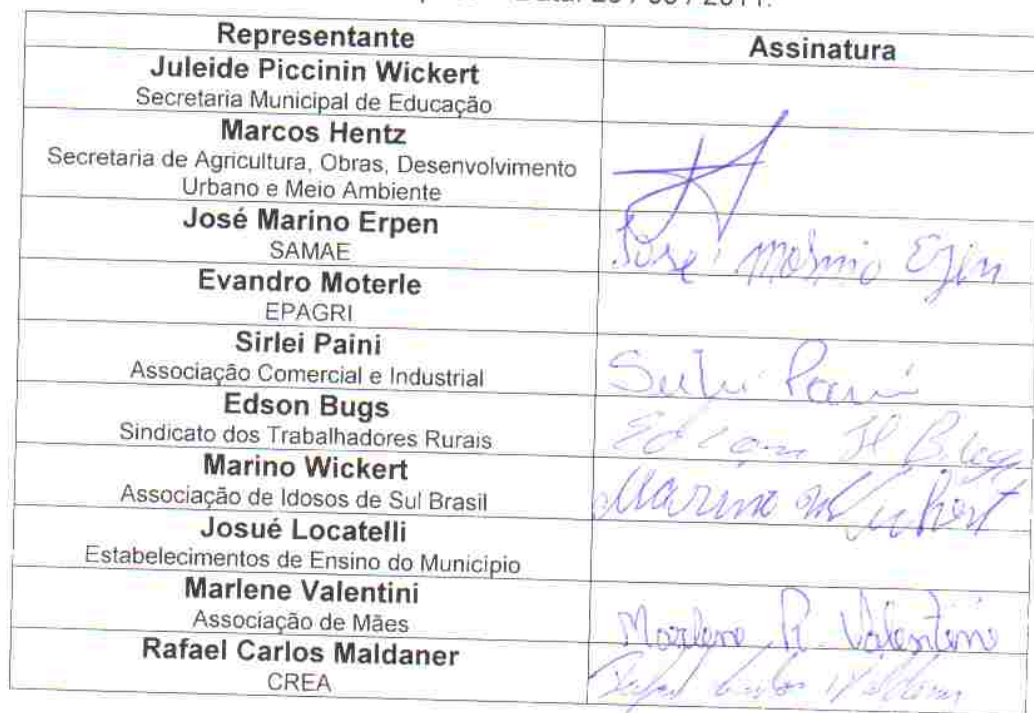 Representante Assinatura
Juleide Piccinin Wickert
Secretaria Municipal de Educação
Marcos Hentz
Secretaria de Agricultura, Obras, Desenvolvimento
Urbano e Meio Ambiente
José Marino Erpen
SAMAE
José Marino Erpen
Evandro Moterle
EPAGRI
Sirlei Paini
Associação Comercial e Industrial
Sirlei Paini
Edson Bugs
Sindicato dos Trabalhadores Rurais
Marino Wickert
Associação de Idosos de Sul Brasil
Marino Wickert
Josué Locatelli
Estabelecimentos de Ensino do Municipio
Marlene Valentini
Associação de Mães
Marlene R. Valentini
Rafael Carlos Maldaner
CREA
Rafael Carlos Maldaner